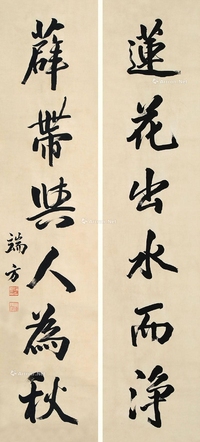 蓮花出水而淨
薜帶與人為秋
端方